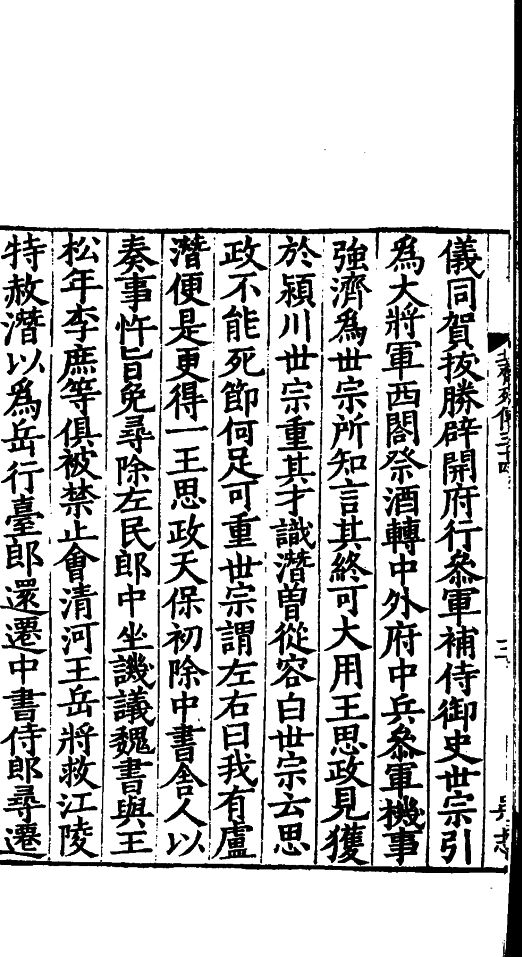 儀同賀拔勝辟開府行叅軍補侍御史世宗引
爲大將軍西閤祭酒轉中外府中兵叅軍機事
強濟爲世宗所知言其終可大用王思政見獲
於潁川世宗重其才識潛曽從容白世宗云思
政不能死節何足可重世宗謂左右曰我有盧
潛便是更得一王思政天保初除中書舍人以
奏事忤旨免尋除左民郎中坐譏議魏書與王
松年李庶等俱被禁止會清河王岳將救江陵
特赦潛以爲岳行臺郎還遷中書侍郎尋遷